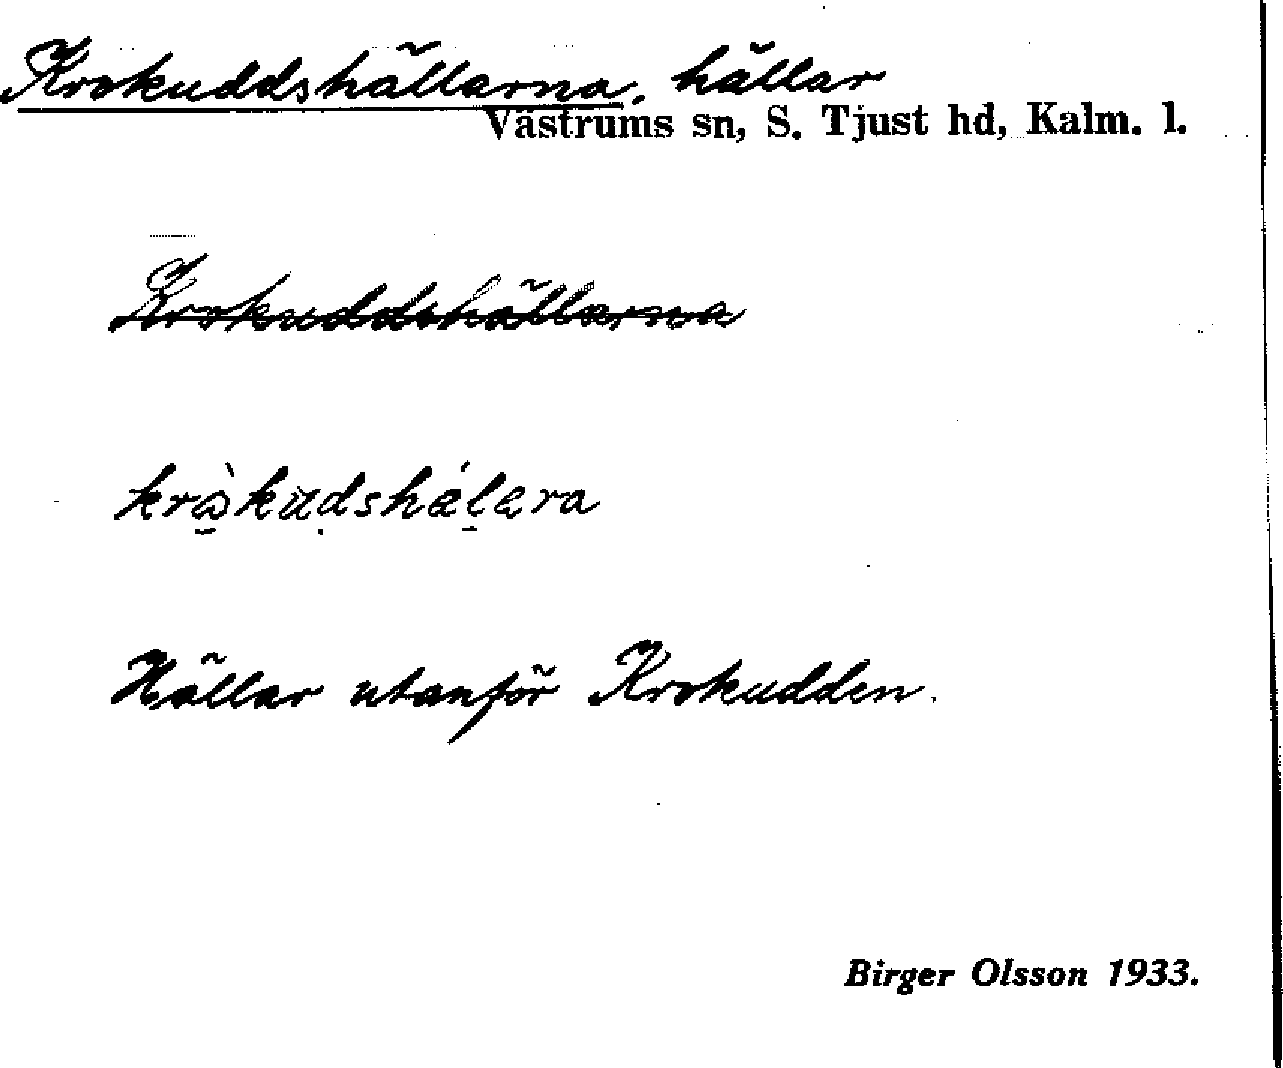 Krokuddshällarna, hällar
Västrums sn, S. Tjust hd, Kalm. l.
Krokuddshällarna
Hällar utanför Krokudden.
Birger Olsson 1933.